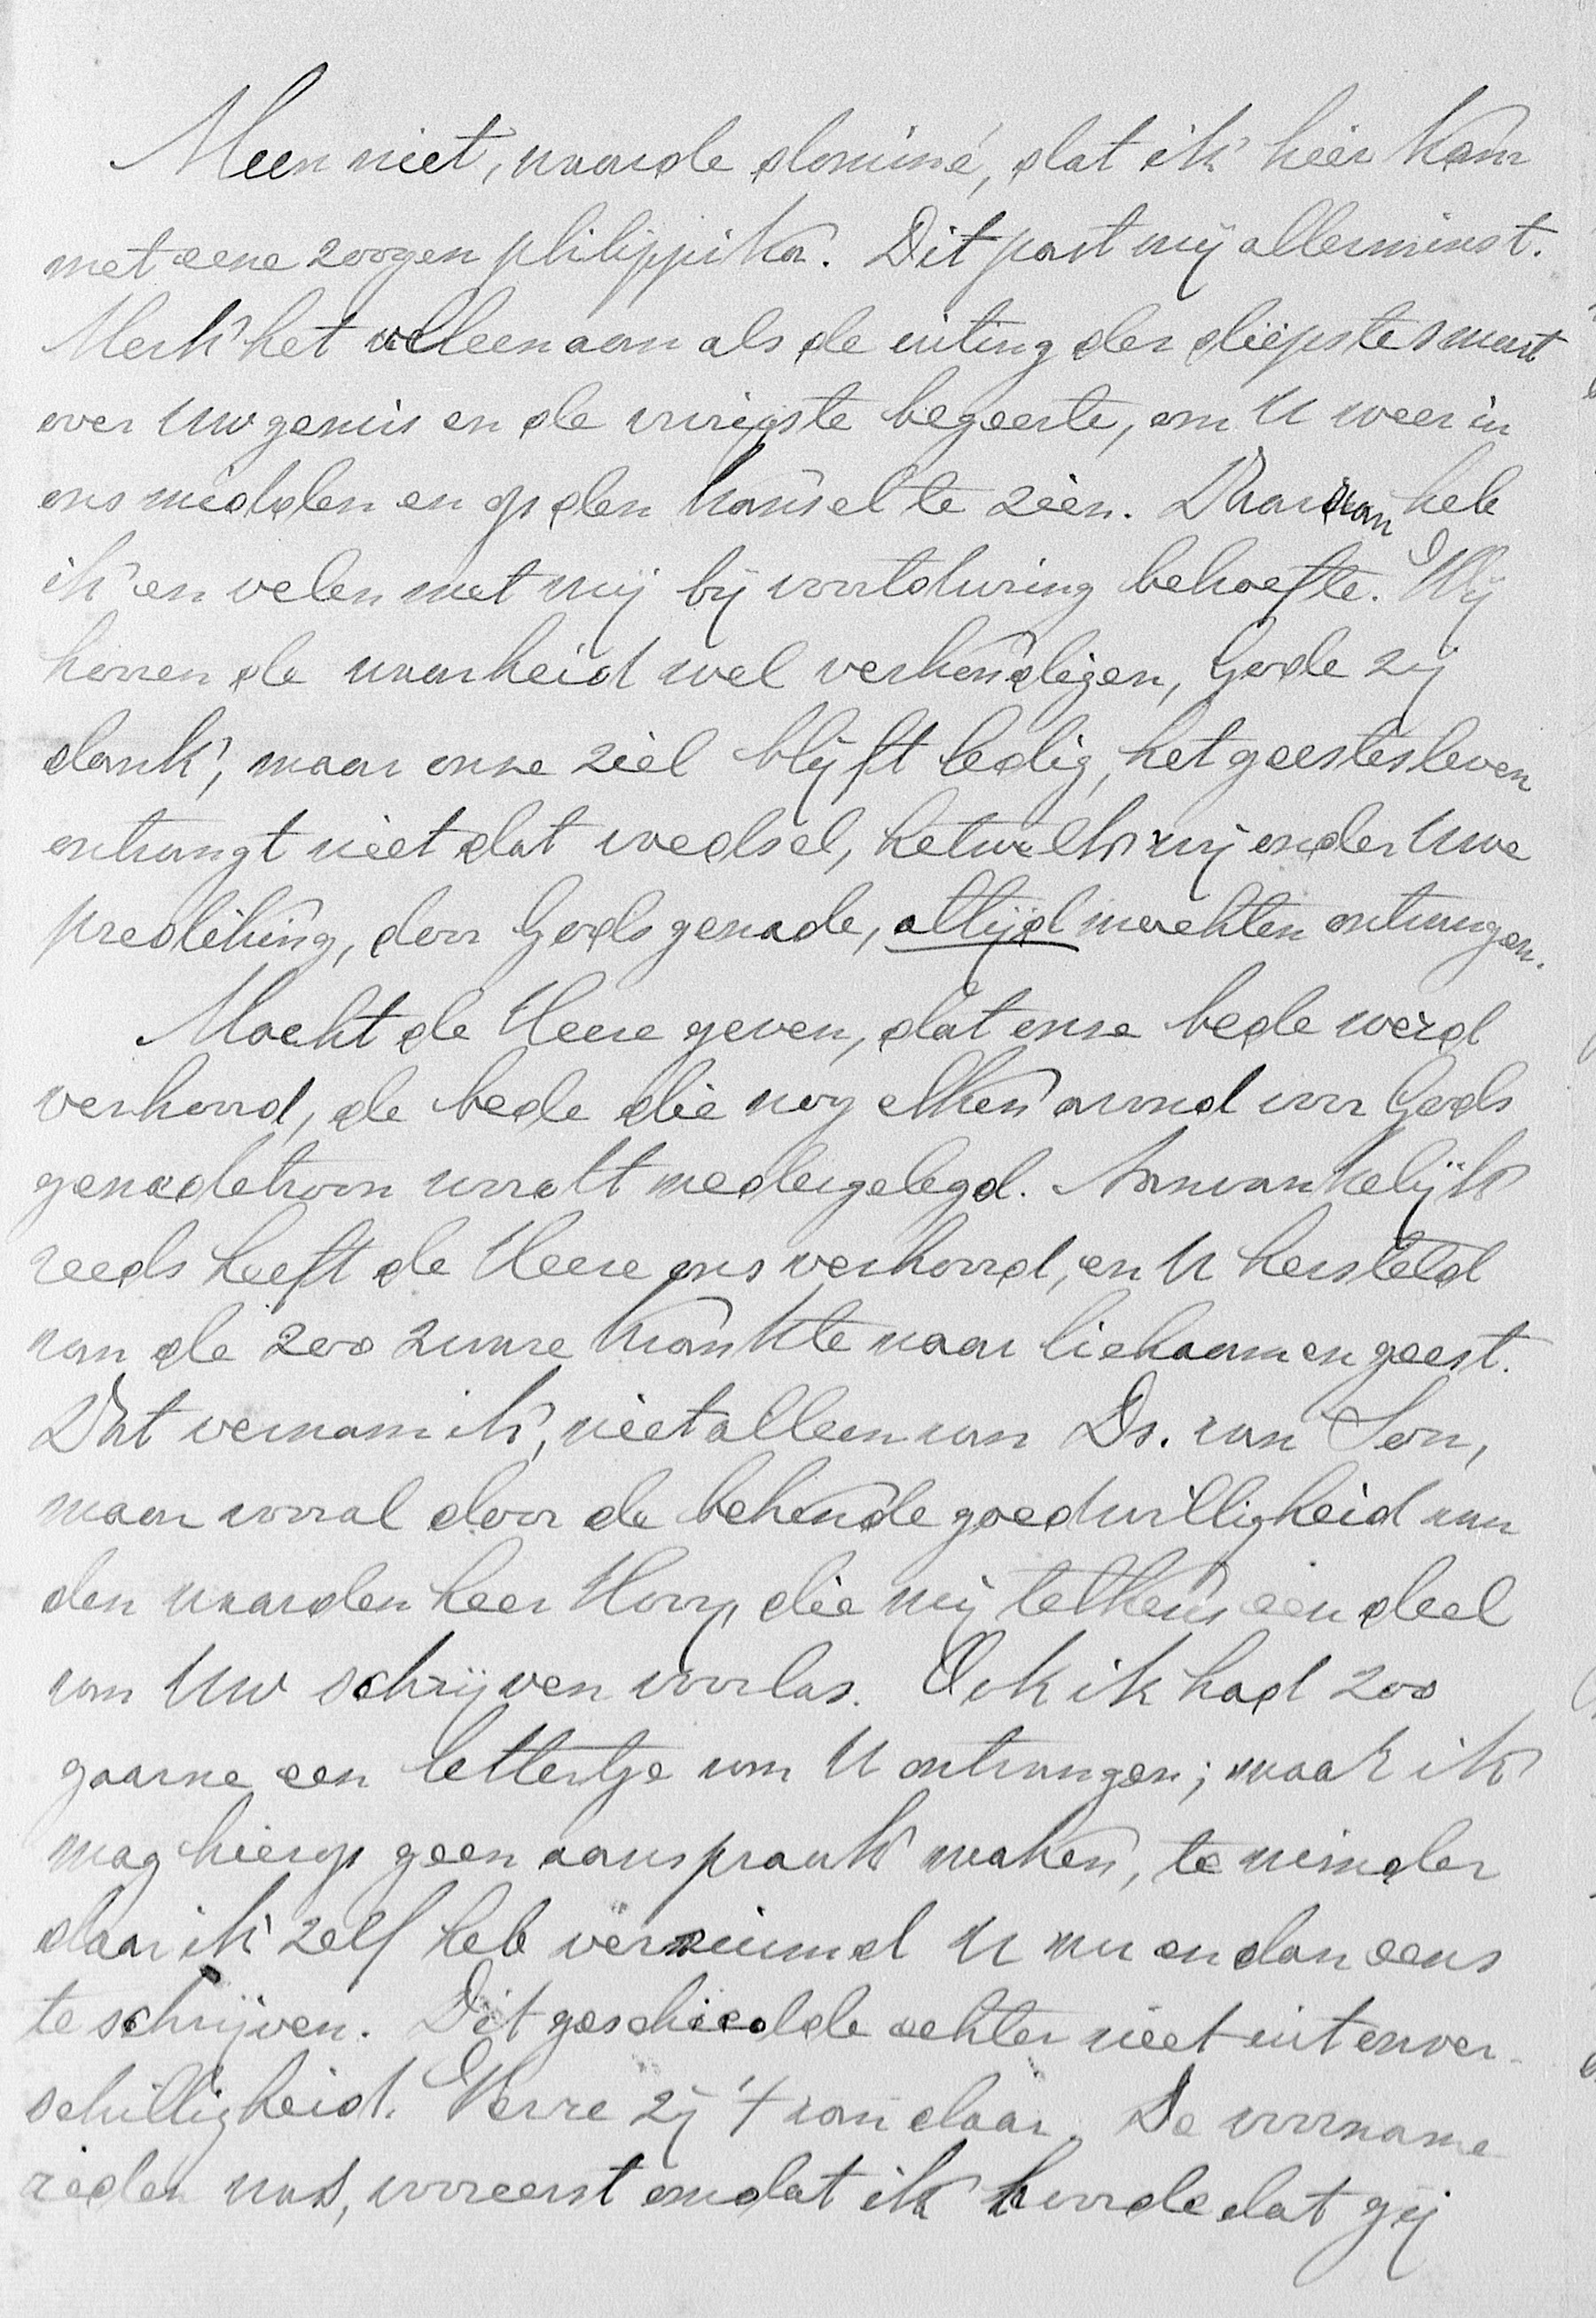 Meen niet, waarde dominé, dat ik hier kom
met eene zoogen philippika. Dit past mij allerminst.
Merk het alleen aan als de uiting der diepste smart
over Uw gemis en de vurigste begeerte, om U weer in
ons midden en op den kansel te zien. Daaraan heb
ik en velen met mij bij voortduring behoefte. Wij
hooren de waarheid wel verkondigen, Gode zij
dank, maar onze ziel blijft ledig, het geestesleven
ontvangt niet dat voedsel, hetwelk wij onder Uwe
prediking, door Gods genade, altijd mochten ontvangen.
Mocht de Heere geven, dat onze bede werd
verhoord, de bede die nog elken avond voor Gods
genadetroon wordt nedergelegd. Aanvankelijk
reeds heeft de Heere ons verhoord, en U hersteld
van de zoo zware krankte naar lichaam en geest.
Dat vernam ik, niet alleen van Ds. van Son,
maar vooral door de bekende goedwilligheid van
den waarden heer Hoop, die mij telkens een deel
van Uw schrijven voorlas. Ook ik had zoo
gaarne een lettertje van U ontvangen; maar ik
mag hierop geen aanspraak maken, te minder
daar ik zelf heb verzuimd U nu en dan eens
te schrijven. Dit geschiedde echter niet uit onver-
schilligheid. Verre zij 't van daar. De voorname
reden was, vooreerst omdat ik hoorde dat gij